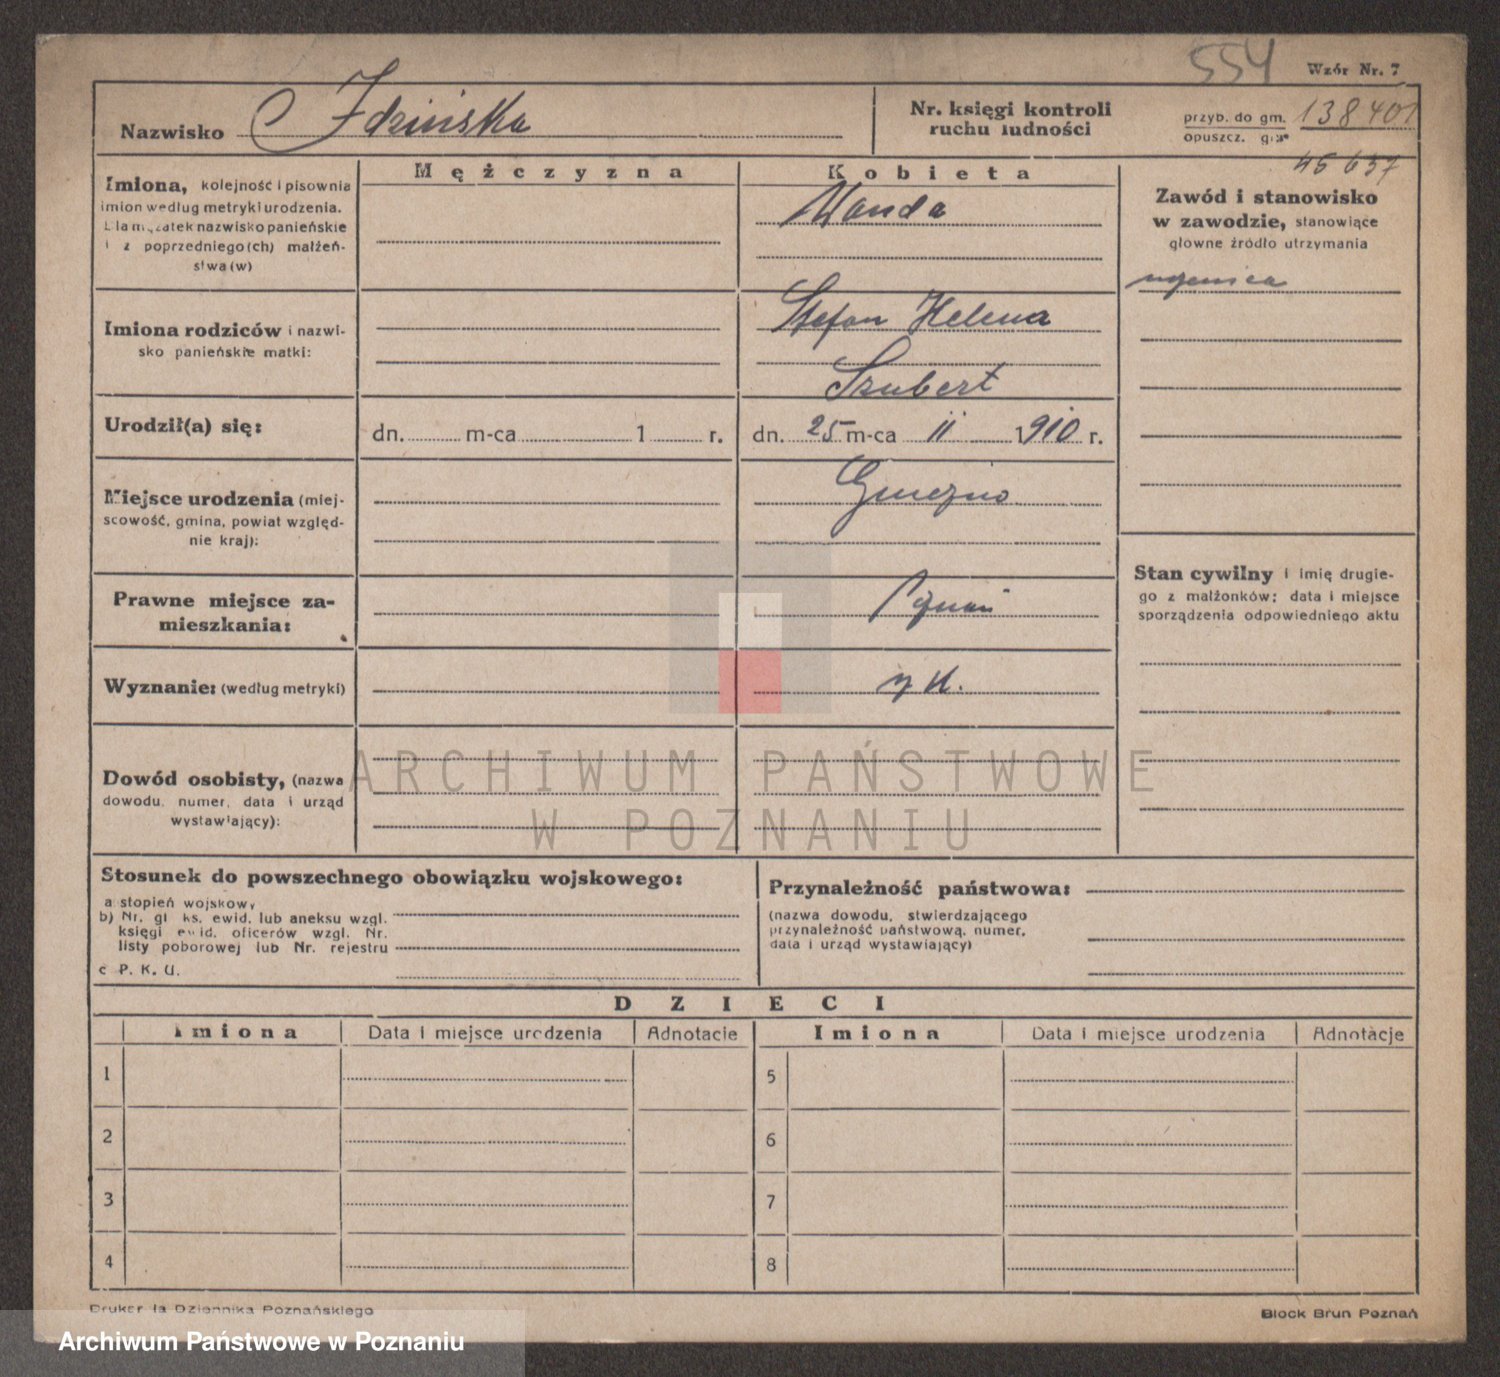 554
Wzór Nr. 7
Nazwisko Idzińska
Nr. księgi kontroli
ruchu ludności
przyb. do gm. 138401
opuszcz. gm.
45637
Imiona, kolejność i pisownia
imion według metryki urodzenia.
Dla mężatek nazwisko panieńskie
i z poprzedniego(ch) małżeń-
stwa(w)
Mężczyzna
Kobieta
Wanda
Zawód i stanowisko
w zawodzie, stanowiące
główne źródło utrzymania
Imiona rodziców i nazwi-
sko panieńskie matki:
Stefan Helena
Szubert
Urodził(a) się:
dn. m-ca 1 r.
dn. 25 m-ca II 1910 r.
Miejsce urodzenia (miej-
scowość, gmina, powiat względ-
nie kraj):
Gniezno
Stan cywilny i imię drugie-
go z małżonków; data i miejsce
sporządzenia odpowiedniego aktu
Prawne miejsce za-
mieszkania:
Poznań
Wyznanie: (według metryki)
rz k.
Dowód osobisty, (nazwa
dowodu, numer, data i urząd
wystawiający):
ARCHIWUM PAŃSTWOWE
W POZNANIU
Stosunek do powszechnego obowiązku wojskowego:
a stopień wojskowy
b) Nr. gł ks. ewid. lub aneksu wzgl.
księgi ewid. oficerów wzgl. Nr.
listy poborowej lub Nr. rejestru
c P. K. U.
Przynależność państwowa:
(nazwa dowodu, stwierdzającego
przynależność państwową, numer,
data i urząd wystawiający)
DZIECI
Imiona Data i miejsce urodzenia Adnotacje Imiona Data i miejsce urodzenia Adnotacje
1 5
2 6
3 7
4 8
Drukarnia Dziennika Poznańskiego
Block Brun Poznań
Archiwum Państwowe w Poznaniu